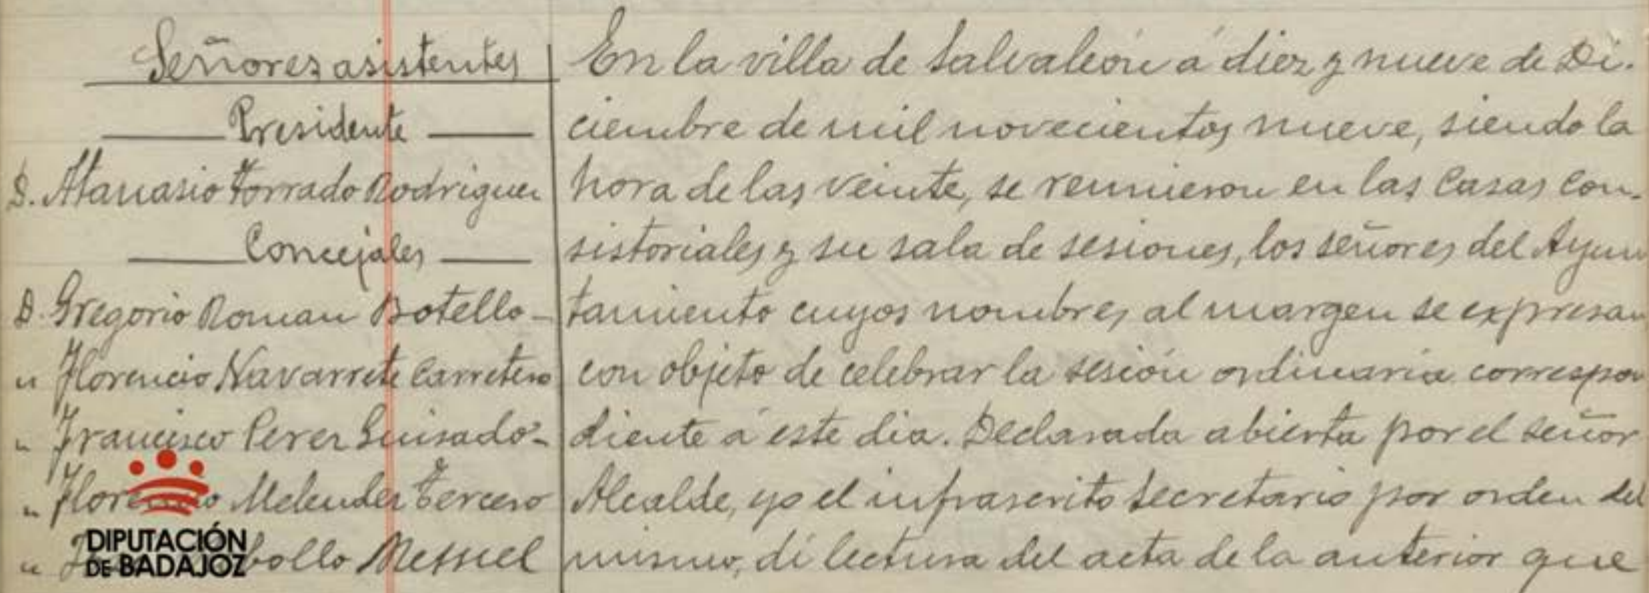 Señores asistentes
Presidente
D. Atanasio Torrado Rodriguez
Concejales
D. Gregorio Roman Botello
" Florencio Navarrete Carretero
" Francisco Perez Guisado
" Melendez Tercero
"
DIPUTACIÓN
DE BADAJOZ
En la villa de Salvaleón á diez y nueve de Di-
ciembre de mil novecientos nueve, siendo la
hora de las veinte, se reunieron en las Casas Con-
sistoriales y su sala de sesiones, los señores del Ayun
tamiento cuyos nombres al margen se expresan
con objeto de celebrar la sesión ordinaria correspon
diente á este dia. Declarada abierta por el señor
Alcalde, yo el infrascrito Secretario por orden del
mismo, dí lectura del acta de la anterior que